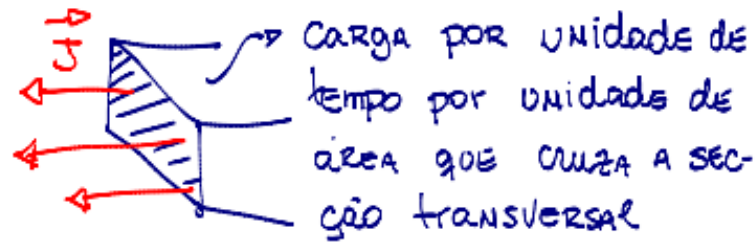 J
carga por unidade de
tempo por unidade de
área que cruza a sec-
ção transversal